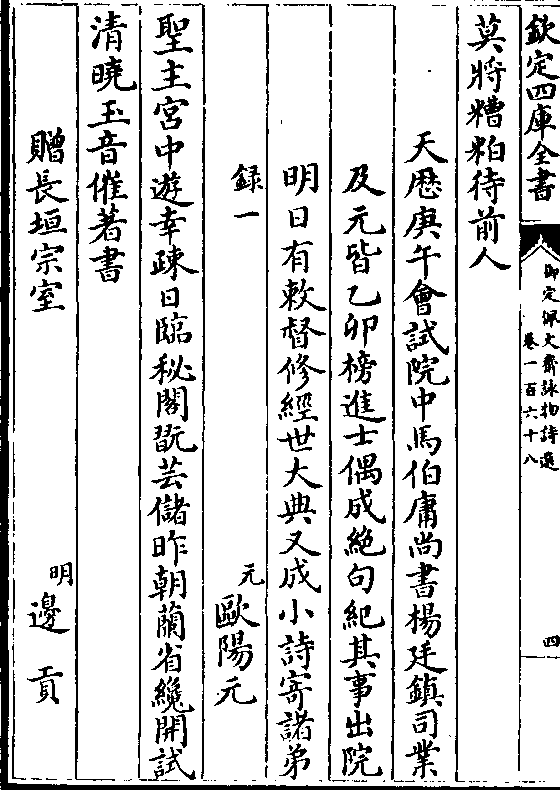 欽定四庫全書
御定佩文齋詠物詩選
卷一百六十八
四
莫將糟粕待前人
天歴庚午會試院中馬伯庸尚書楊廷鎮司業
及元皆乙卯榜進士偶成絶句紀其事出院
明日有敕督修經世大典又成小詩寄諸弟
録一
元歐陽元
聖主宮中遊幸疎日臨秘閣翫芸儲昨朝蘭省纔開試
清曉玉音催著書
贈長垣宗室
明邊貢